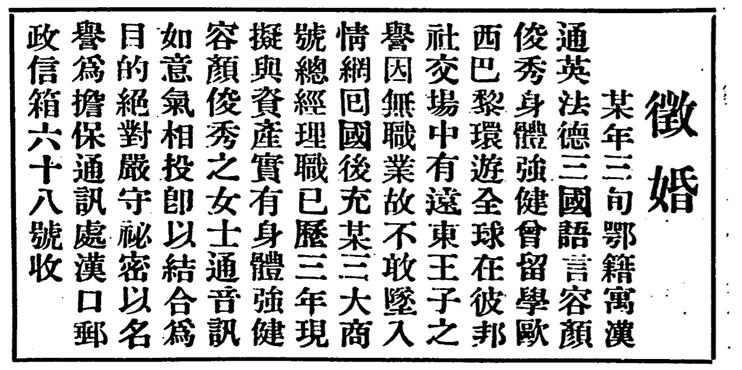 徵婚
某年三旬鄂籍寓漢
通英法德三國語言容顏
俊秀身體強健曾留學歐
西巴黎環遊全球在彼邦
社交場中有遠東王子之
譽因無職業故不敢墜入
情網囘國後充某三大商
號總經理職已歷三年現
擬與資產實有身體強健
容顏俊秀之女士通音訊
如意氣相投卽以結合爲
目的絕對嚴守祕密以名
譽爲擔保通訊處漢口郵
政信箱六十八號收